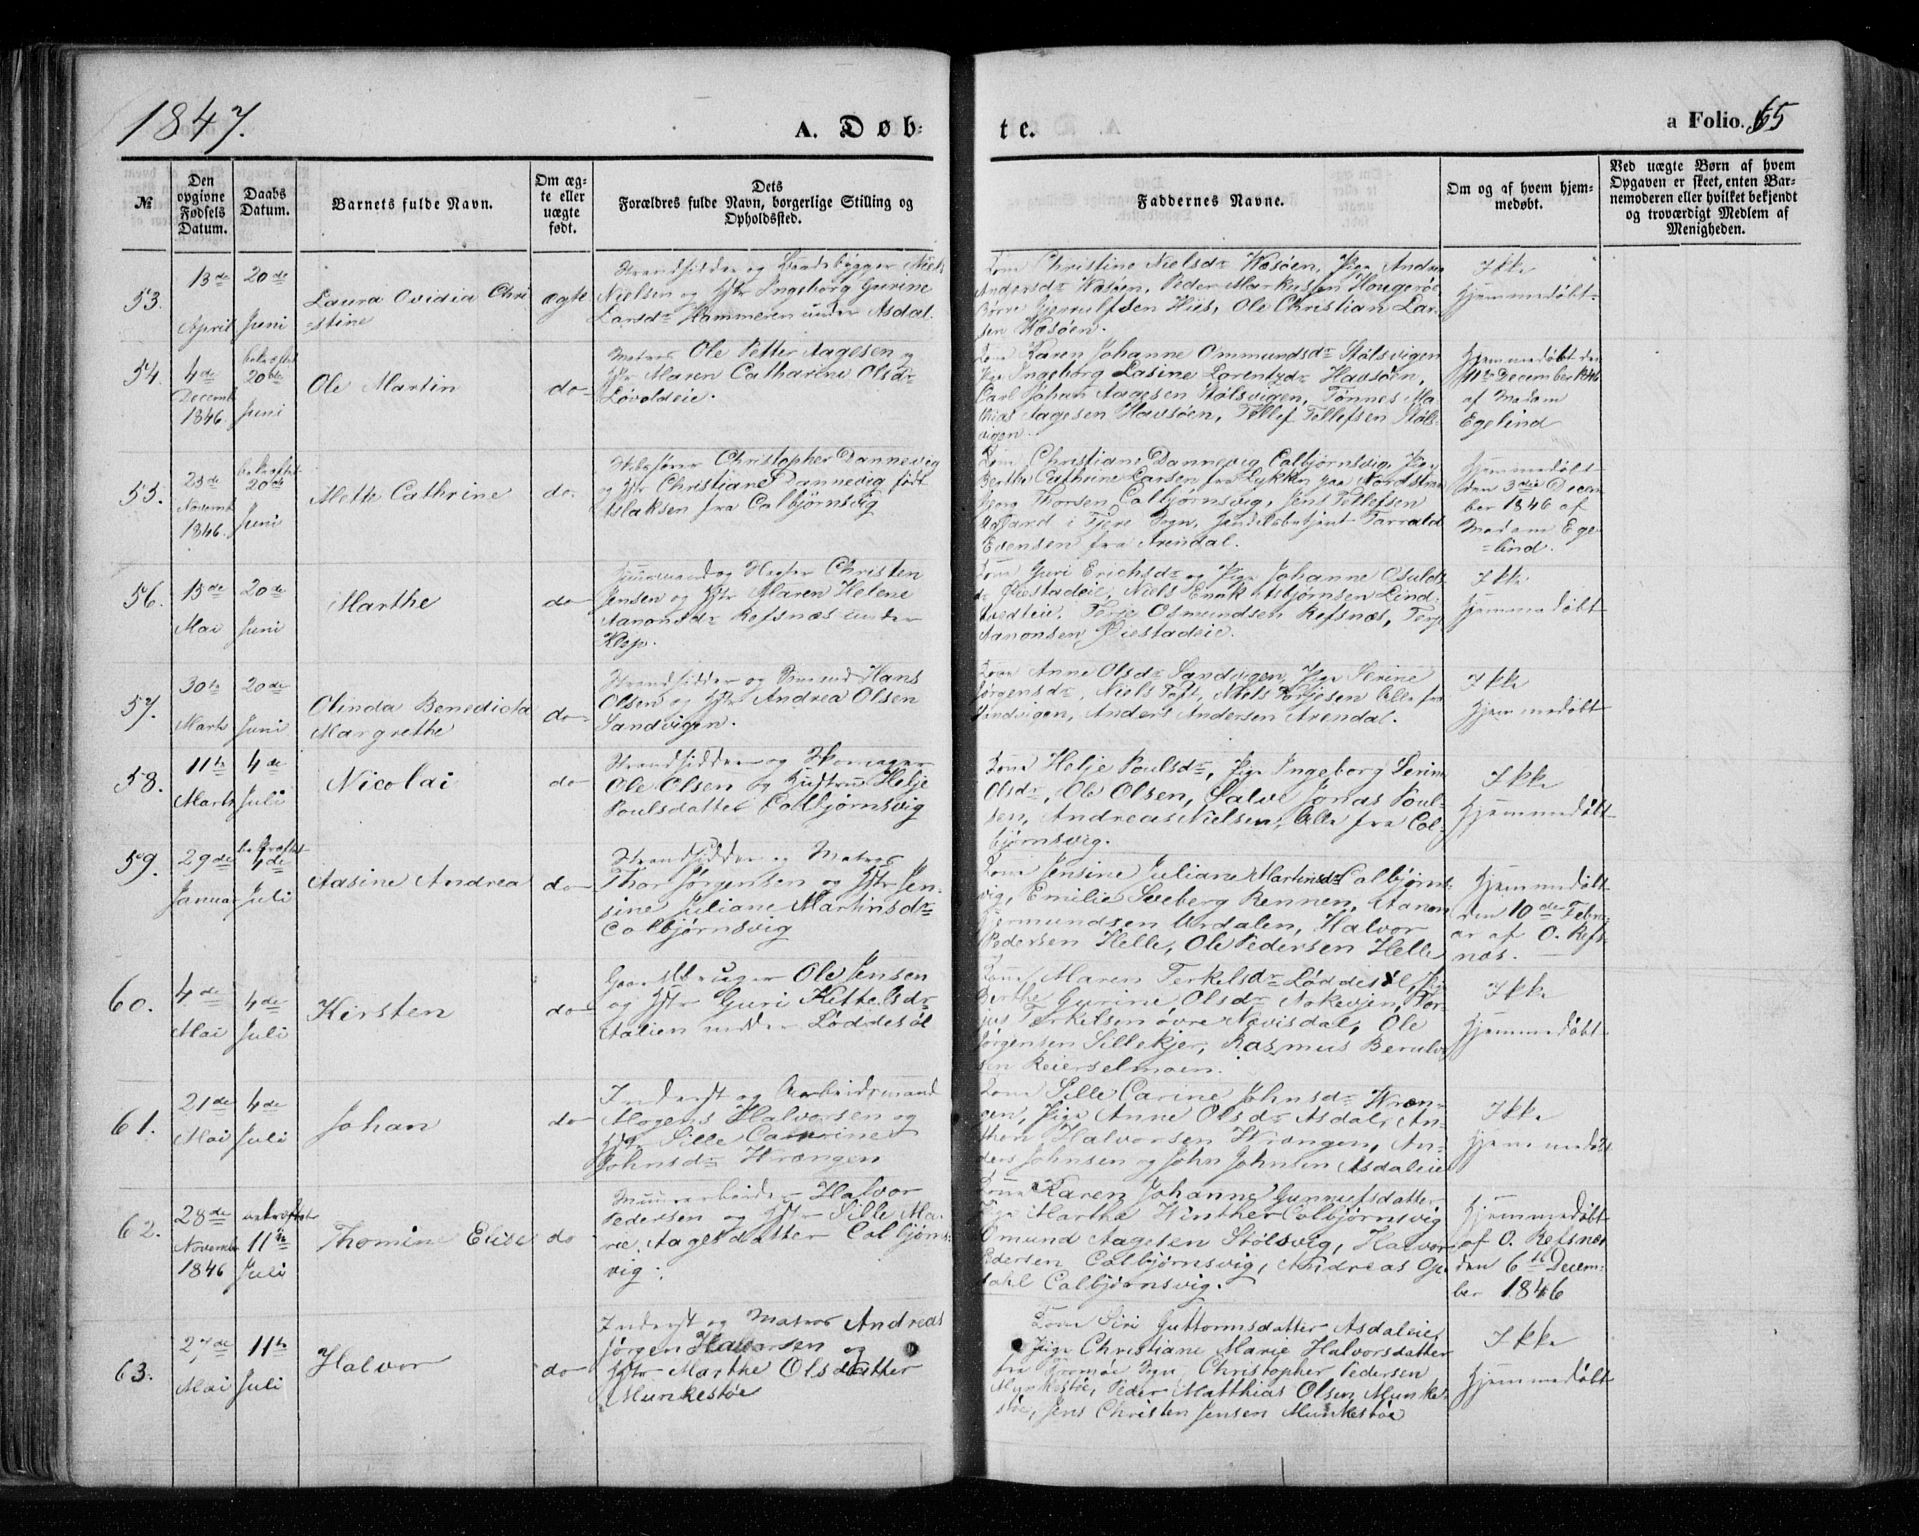 1847.
A. Døb-
te.
a Folio. 65
№
Den opgivne Fødsels Datum.
Daabs Datum.
Barnets fulde Navn.
Om ægte eller uægte født.
Dets Forældres fulde Navn, borgerlige Stilling og Opholdssted.
Faddernes Navne.
Om og af hvem hjemmedøbt.
Ved uægte Børn af hvem Opgaven er skeet, enten Barnemoderen eller hvilket bekjendt og troværdigt Medlem af Menigheden.
53.
13de April
20de Juni
Laura Ovidia Chri
stine
ægte
Strandsidder og
Nielsen og Hstr Ingeborg Gurine
Larsdr Hammeren under Asdal.
Kone Christine Nielsdr Wæsøen, Pige Andrea
Andersdr Wæsøen, Peder Markussen Hougerøe
Hiis, Ole Christian Lar
sen Wæsøen.
Ikke
hjemmedøbt
54.
4de Decemb 1846.
bekræftet 20de Juni
Ole Martin
do
Matros Ole Petter Aagesen og
Hstr Maren Catharine Olsdr
Løvoldeie.
Kone Karen Johanne Ommundsdr Stølsvigen
Pige Ingeborg Lasine Lorentzdr Havsøen,
Carl Johan Aagesen Stølsvigen, Tønnes Ma
Aagesen Havsøen, Tellef Tellefsen Støls
vigen.
Hjemmedøbt den
11te December 1846
af Madam
Egelind
55.
23de Novemb 1846.
bekræftet 20de Juni
Mette Cathrine
do.
Christopher Dannevig
og Hstr Christiane Dannevig født
Islaksen fra Colbjørnsvig
Kone Christiane Dannevig Colbjørnsvig, Pige
Berthe Cathrine Larsen fra Lykken paa
Thorsen Colbjørnsvig, Jens Tellefsen
i Fjere Sogn, Handelsbetjent Tarrald
Evensen fra Arendal.
Hjemmedøbt
den 3die Decem
ber 1846 af
Madam Ege
lind.
56.
15de Mai
20de Juni
Marthe
do
Huusmand og Christen
Jensen og Hstr Maren Helene
Aanonsdr Refsnæs under
Klop.
Kone Guri Erichsdr og Pige Johanne Osulds
dr Niels Enok Asbjørnsen Lind
tvedteie, Terje Osmundsen Refsnæs, Terje
Aanonsen
Ikke
hjemmedøbt
57.
30te Marts
20de Juni
Olinda Benedicta
Margrethe
do
Strandsidder og Sømand Hans
Olsen og Hstr Andrea Olsen
Sandvigen.
Kone Anne Olsdr Sandvigen, Pige Serine
Jørgensdr, Niels Toft, Niels Terjesen Alle fra
Sandvigen, Anders Andersen Arendal.
Ikke
hjemmedøbt
58.
11te Marts
4de Juli
Nicolai
do
Strandsidder og Skomager
Ole Olsen og Hustru Helje
Poulsdatter Colbjørnsvig
Kone Helje Poulsdr, Pige Ingeborg Serine
Olsdr, Ole Olsen, Salve Jonas Poul
sen, Andreas Nielsen, Alle fra Col
bjørnsvig.
Ikke
Hjemmedøbt
59.
29de Januar
bekræftet 4de Juli
Aasine Andrea
do
Strandsidder og Matros
Thor Jørgensen og Hstr Jen
sine Juliane Martinsdr
Colbjørnsvig
Kone Jensine Juliane Martinsdr Colbjørns
vig, Emilie Seeberg Rennen, Aanon
Gjermundsen Urdalen, Halvor
Pedersen Helle, Ole Pedersen Helle
Hjemmedøbt
den 10de Febru
ar af O. Refs
næs.
60.
4de Mai
4de Juli
Kirsten
do
Gaardbruger Ole Jensen
og Hstr Guri Kettelsdr
Stalien under Løddesøl
Kone Maren Terkelsdr Løddesøl, Pige
Berthe Gurine Olsdr
Terkelsen øvre Nævisdal, Ole
Jørgensen Sillekjer, Rasmus Berulv
sen Reierselmoen.
Ikke
Hjemmedøbt
61.
21de Mai
4de Juli
Johan
do
Inderst og Arbeidsmand
Mogens Halvorsen og
Hstr Sille Carine
Johnsdr Wrængen
Kone Sille Carine Johnsdr Wræn
gen, Pige Anne Olsdr Asdal, An
thon Halvorsen Wrængen, An
ders Johnsen og John Johnsen Asdaleie
Ikke
Hjemmedøbt
62.
28de Novemb 1846
bekræftet 11te Juli
Thomine Elise
do
Muurarbeider Halvor
Pedersen og Hstr Sille Ma
rie Aagesdatter Colbjørns
vig.
Kone Karen Johanne Gunnufsdatter
Pige Marthe Winther Colbjørnsvig
Omund Aagesen Stølsvig, Halvor
Pedersen Colbjørnsvig, Andreas Op
dahl Colbjørnsvig.
Hjemmedøbt
af O. Refsnæs
den 6te Decem
ber 1846
63.
27de Mai
11te Juli
Halvor
do
Inderst og Matros Andreas
Jørgen Halvorsen og
Hstr Marthe Olsdatter
Munkestøe
Kone Siri Guttormsdatter Asdaleie,
Pige Christiane Marie Halvorsdatter
fra Tromøe Sogn Christopher Pedersen
Myrkestøe, Peder Matthias Olsen Munke
støe, Jens Christen Jensen Munkestøe
Ikke
Hjemmedøbt